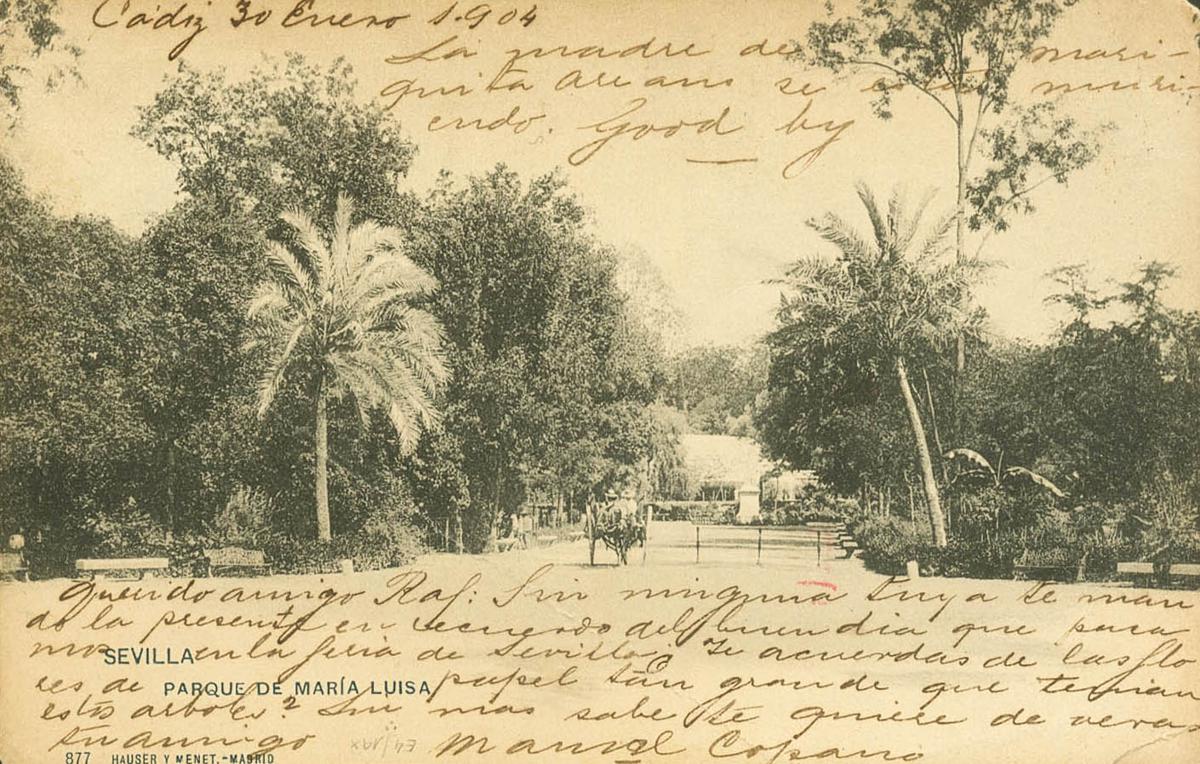 Cádiz 30 Enero 1.904
La madre de mari-
quita se está muri-
endo. Good by
Querido amigo Raf: Sin ninguna tuya te man
do la presente en recuerdo del buen dia que pasa
mos en la feria de Sevilla; Te acuerdas de las flo
SEVILLA
res de papel tan grande que tenian
PARQUE DE MARÍA LUISA
estos arboles? Sin mas sabe te quiere de veras
tu amigo Manuel
877 HAUSER Y MENET.-MADRID